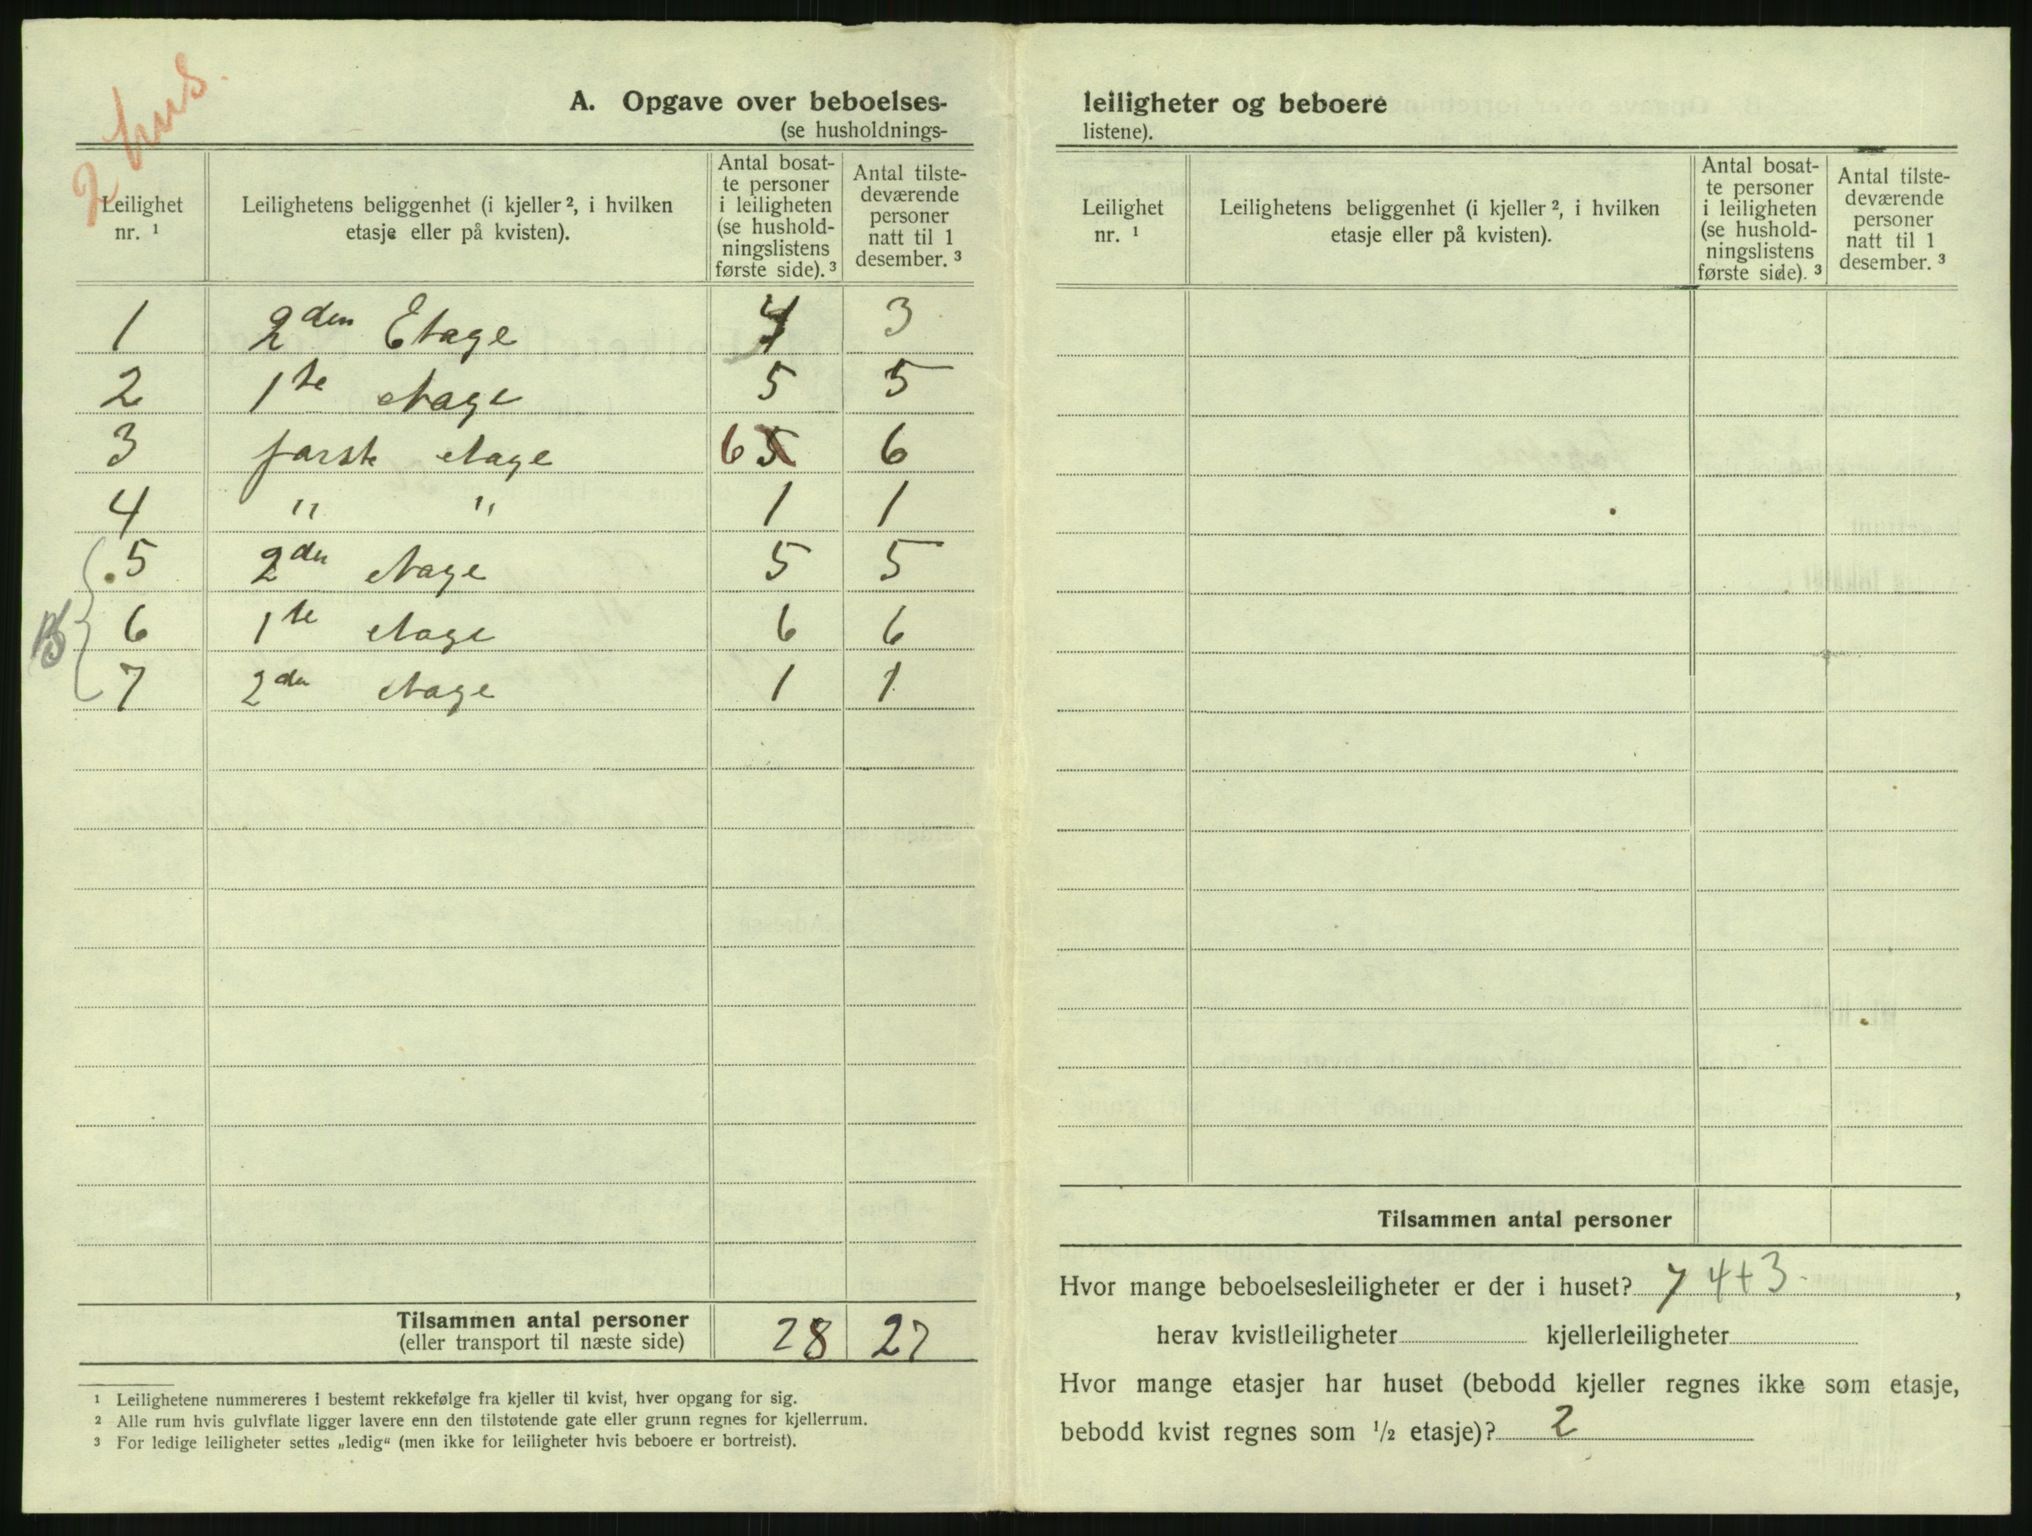 2 hus.
A. Opgave over beboelses-
(se husholdnings-
Leilighet nr. ¹ | Leilighetens beliggenhet (i kjeller ², i hvilken etasje eller på kvisten). | Antal bosat-te personer i leiligheten (se hushold-ningslistens første side). ³ | Antal tilste-deværende personer natt til 1 desember. ³
1 2den Etage 4 3
2 1ste etage 5 5
3 første etage 6 5 6
4 " " 1 1
5 2den etage 5 5
B 6 1ste etage 6 6
7 2den etage 1 1
Tilsammen antal personer 28 27
(eller transport til næste side)
¹ Leilighetene nummereres i bestemt rekkefølge fra kjeller til kvist, hver opgang for sig.
² Alle rum hvis gulvflate ligger lavere enn den tilstøtende gate eller grunn regnes for kjellerrum.
³ For ledige leiligheter settes „ledig“ (men ikke for leiligheter hvis beboere er bortreist).
leiligheter og beboere
listene).
Leilighet nr. ¹ | Leilighetens beliggenhet (i kjeller ², i hvilken etasje eller på kvisten). | Antal bosat-te personer i leiligheten (se hushold-ningslistens første side). ³ | Antal tilste-deværende personer natt til 1 desember. ³
Tilsammen antal personer
Hvor mange beboelsesleiligheter er der i huset? 7 4+3 ,
herav kvistleiligheter kjellerleiligheter
Hvor mange etasjer har huset (bebodd kjeller regnes ikke som etasje,
bebodd kvist regnes som ½ etasje)? 2